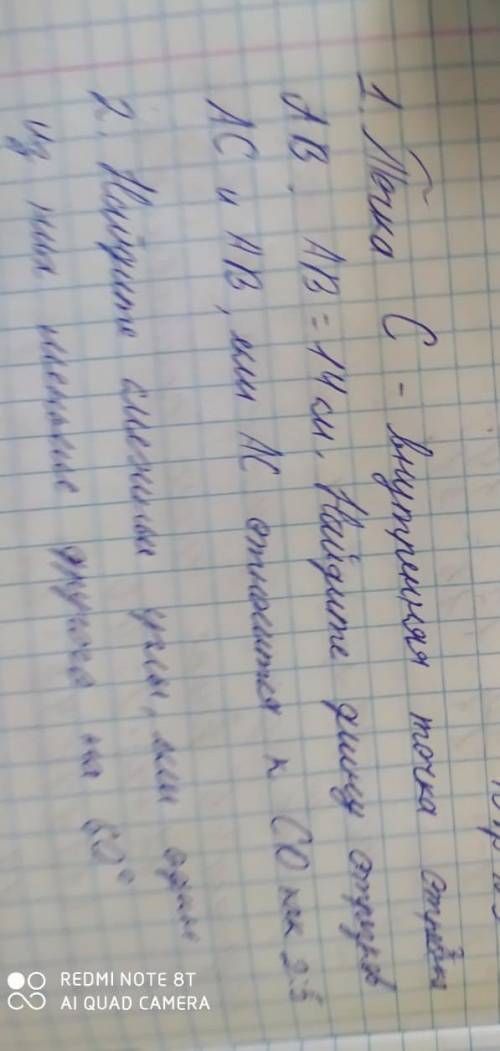 1. Точка С - внутренняя точка отрезка
АВ. АВ = 14 см. Найдите длину отрезков
АС и АВ, если АС относится к СО как
2. Найдите смежные углы, если один
из них меньше другого на
REDMI NOTE 8T
AI QUAD CAMERA